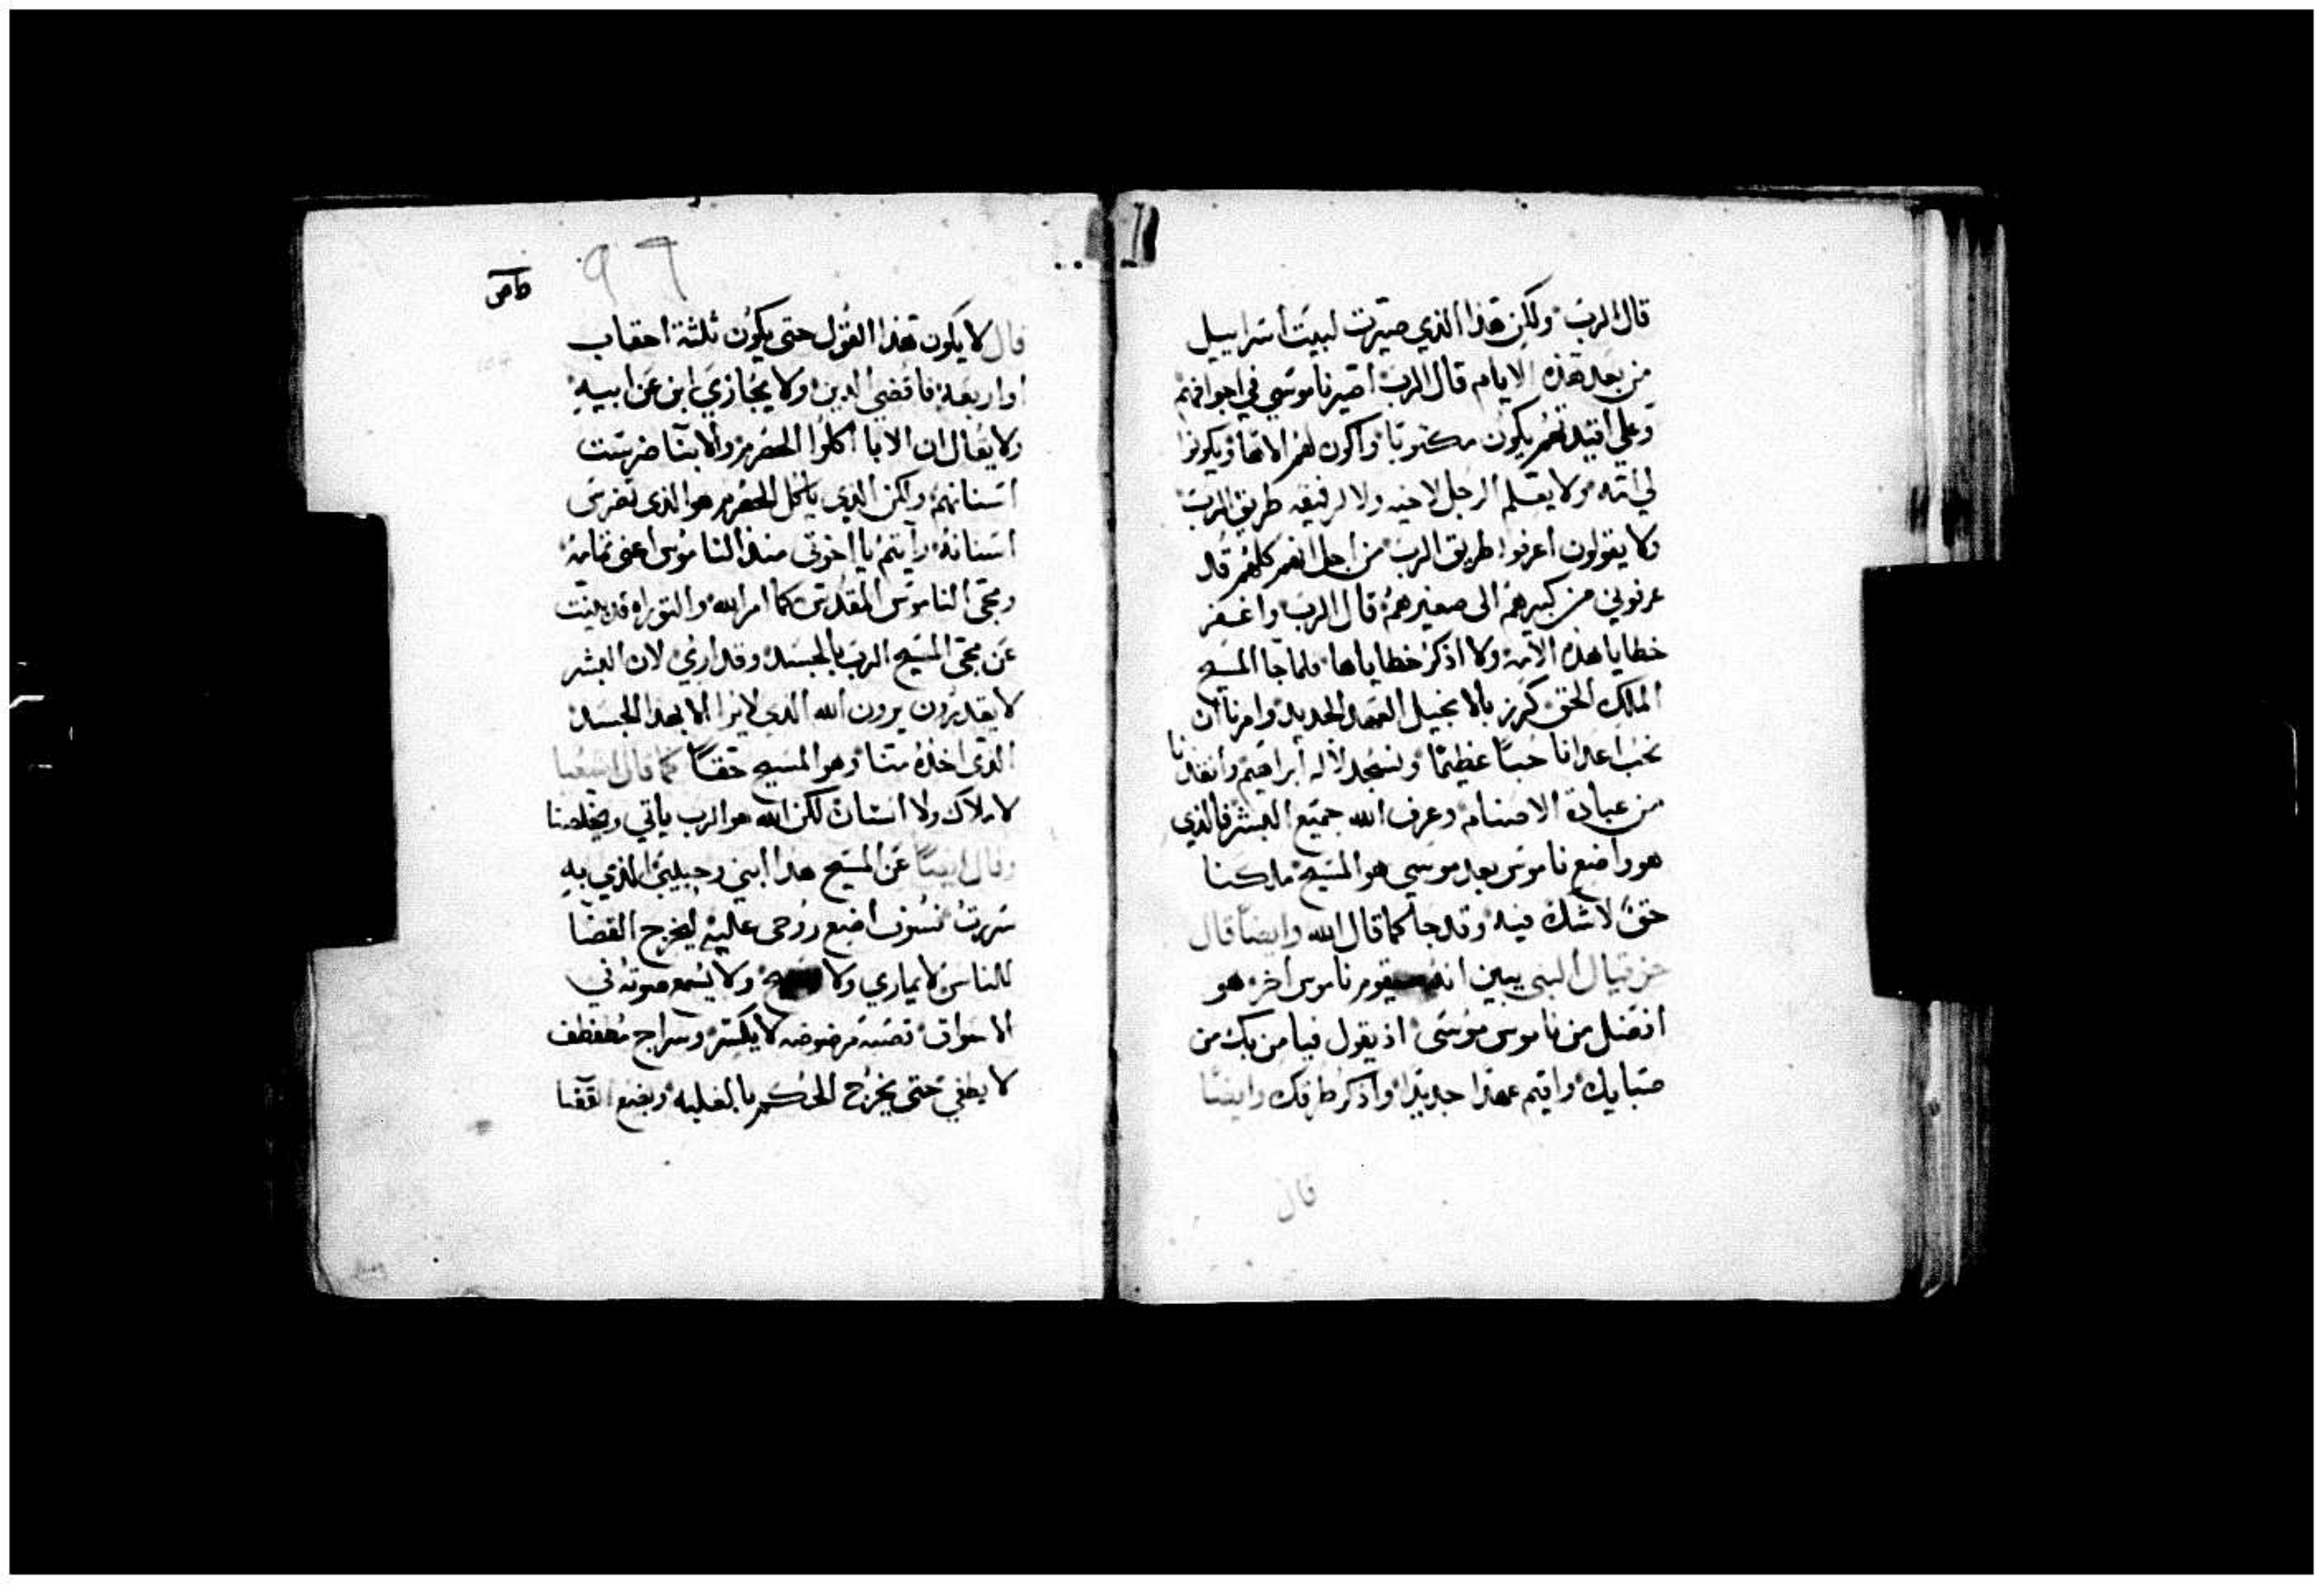 قال الرب ولكن هذا الذي صيرت لبيت اسراييل
من بعد هذه الايام قال الرب اصير ناموسي في اجوافهم
وعلى افيدتهم يكون مكتوبا واكون لهم الاها ويكونوا
لي امه ولا يعلم الرجل لاخيه ولا لرفيقه طريق الرب
ولا يقولون اعرفوا طريق الرب من اجل انهم كلهم قد
عرفوني من كبيرهم الى صغيرهم قال الرب واغفر
خطايا هذه الامه ولا اذكر خطاياها فلما جا المسيح
الملك الحق كرز بالانجيل العهد الجديد وامرنا ان
نحب اعدانا حبا عظيما ونسجد لاله ابراهيم وانقدنا
من عبادة الاصنام وعرف الله جميع البشر فالذي
هو واضع ناموس بعد موسي هو المسيح ملكنا
حق لا شك فيه وقد جا كما قال الله وايضا قال
حزقيال النبي يبين انه سيقوم ناموس اخر هو
افضل من ناموس موسى اذ يقول فيا من بك من
صبايك واقيم عهدا جديدا واذكر طرقك وايضا
قال
٩٦
قال لا يكون هذا القول حتى يكون ثلثة احقاب
او اربعه فاقضي الدين ولا يجازي ابن عن ابيه
ولا يقال ان الابا اكلوا الحصرم والابنا ضرست
اسنانهم ولكن الذي ياكل الحصرم هو الذي تضرس
اسنانه رايتم يا اخوتي منذ الناموس اعنى تمامه
ومجى الناموس المقدس كما امر الله والتوراه قد بينت
عن مجى المسيح الرب بالجسد وقد اري لان البشر
لا يقدرون يرون الله الذي لا يرا الا بهذا الجسد
الذي اخذه منا وهو المسيح حقا كما قال اشعيا
لا ملاك ولا انسان لكن الله هو الرب ياتي ويخلصنا
وقال ايضا عن المسيح هذا ابني وحبيبي الذي به
سررت فسوف اضع روحى عليه ليخرج القضا
للناس لا يماري ولا ولا يسمع صوته في
الاسواق قصبه مرضوضه لا يكسر وسراج مطفطف
لا يطفي حتى يخرج الحكم بالغلبه ويضع القضا